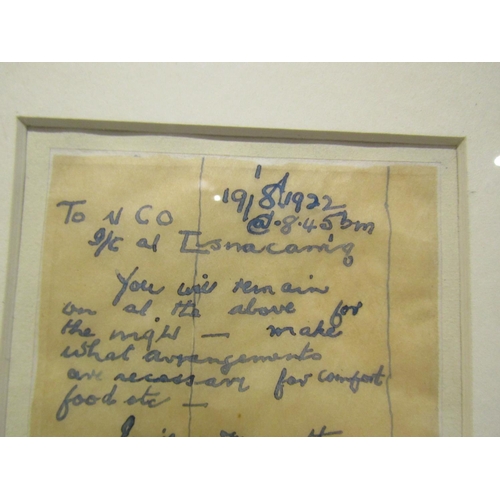 19/8/1922
@ 8.45 pm
To N C O
I/C at Isnacarrig
You will remain
on at the above for
the night — make
what arrangements
are necessary for comfort
food etc —